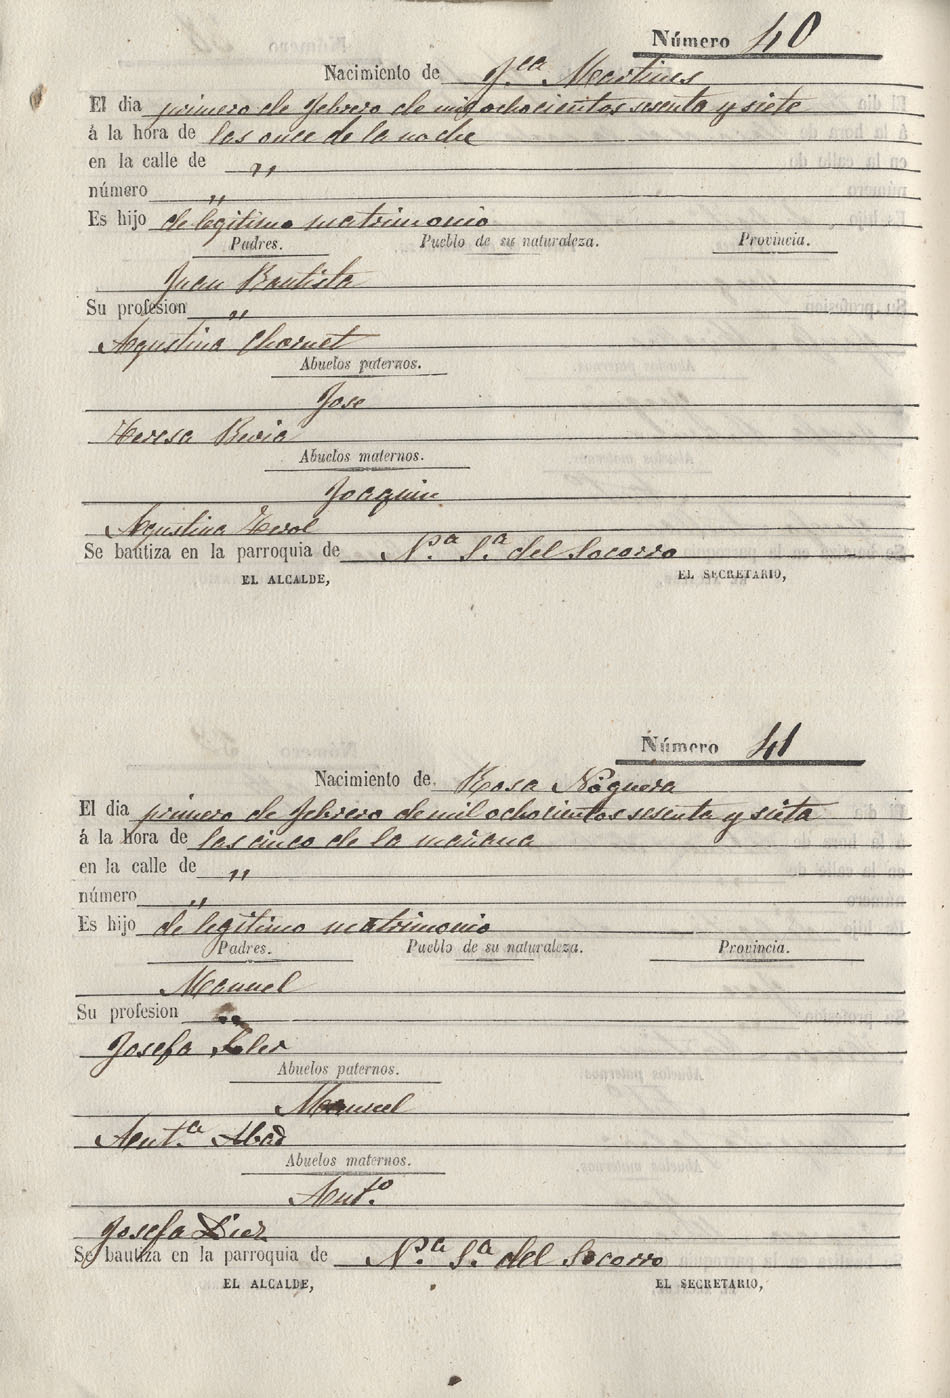 Número 40
Nacimiento de Jca Martines
El dia primero de febrero de mil ochocientos sesenta y siete
á la hora de las once de la noche
en la calle de "
número "
Es hijo de legitimo matrimonio
Padres. Pueblo de su naturaleza. Provincia.
Juan Bautista
Su profesion "
Agustina Charnet
Abuelos paternos.
Jose
Teresa Bevia
Abuelos maternos.
Joaquin
Agustina Terol
Se bautiza en la parroquia de N.ª S.ª del Socorro
EL ALCALDE, EL SECRETARIO,
Número 41
Nacimiento de Rosa Noguera
El dia primero de febrero de mil ochocientos sesenta y siete
á la hora de las cinco de la mañana
en la calle de "
número "
Es hijo de legitimo matrimonio
Padres. Pueblo de su naturaleza. Provincia.
Manuel
Su profesion "
Josefa
Abuelos paternos.
Manuel
Ant.ª Abad
Abuelos maternos.
Ant.º
Josefa Diez
Se bautiza en la parroquia de N.ª S.ª del Socorro
EL ALCALDE, EL SECRETARIO,